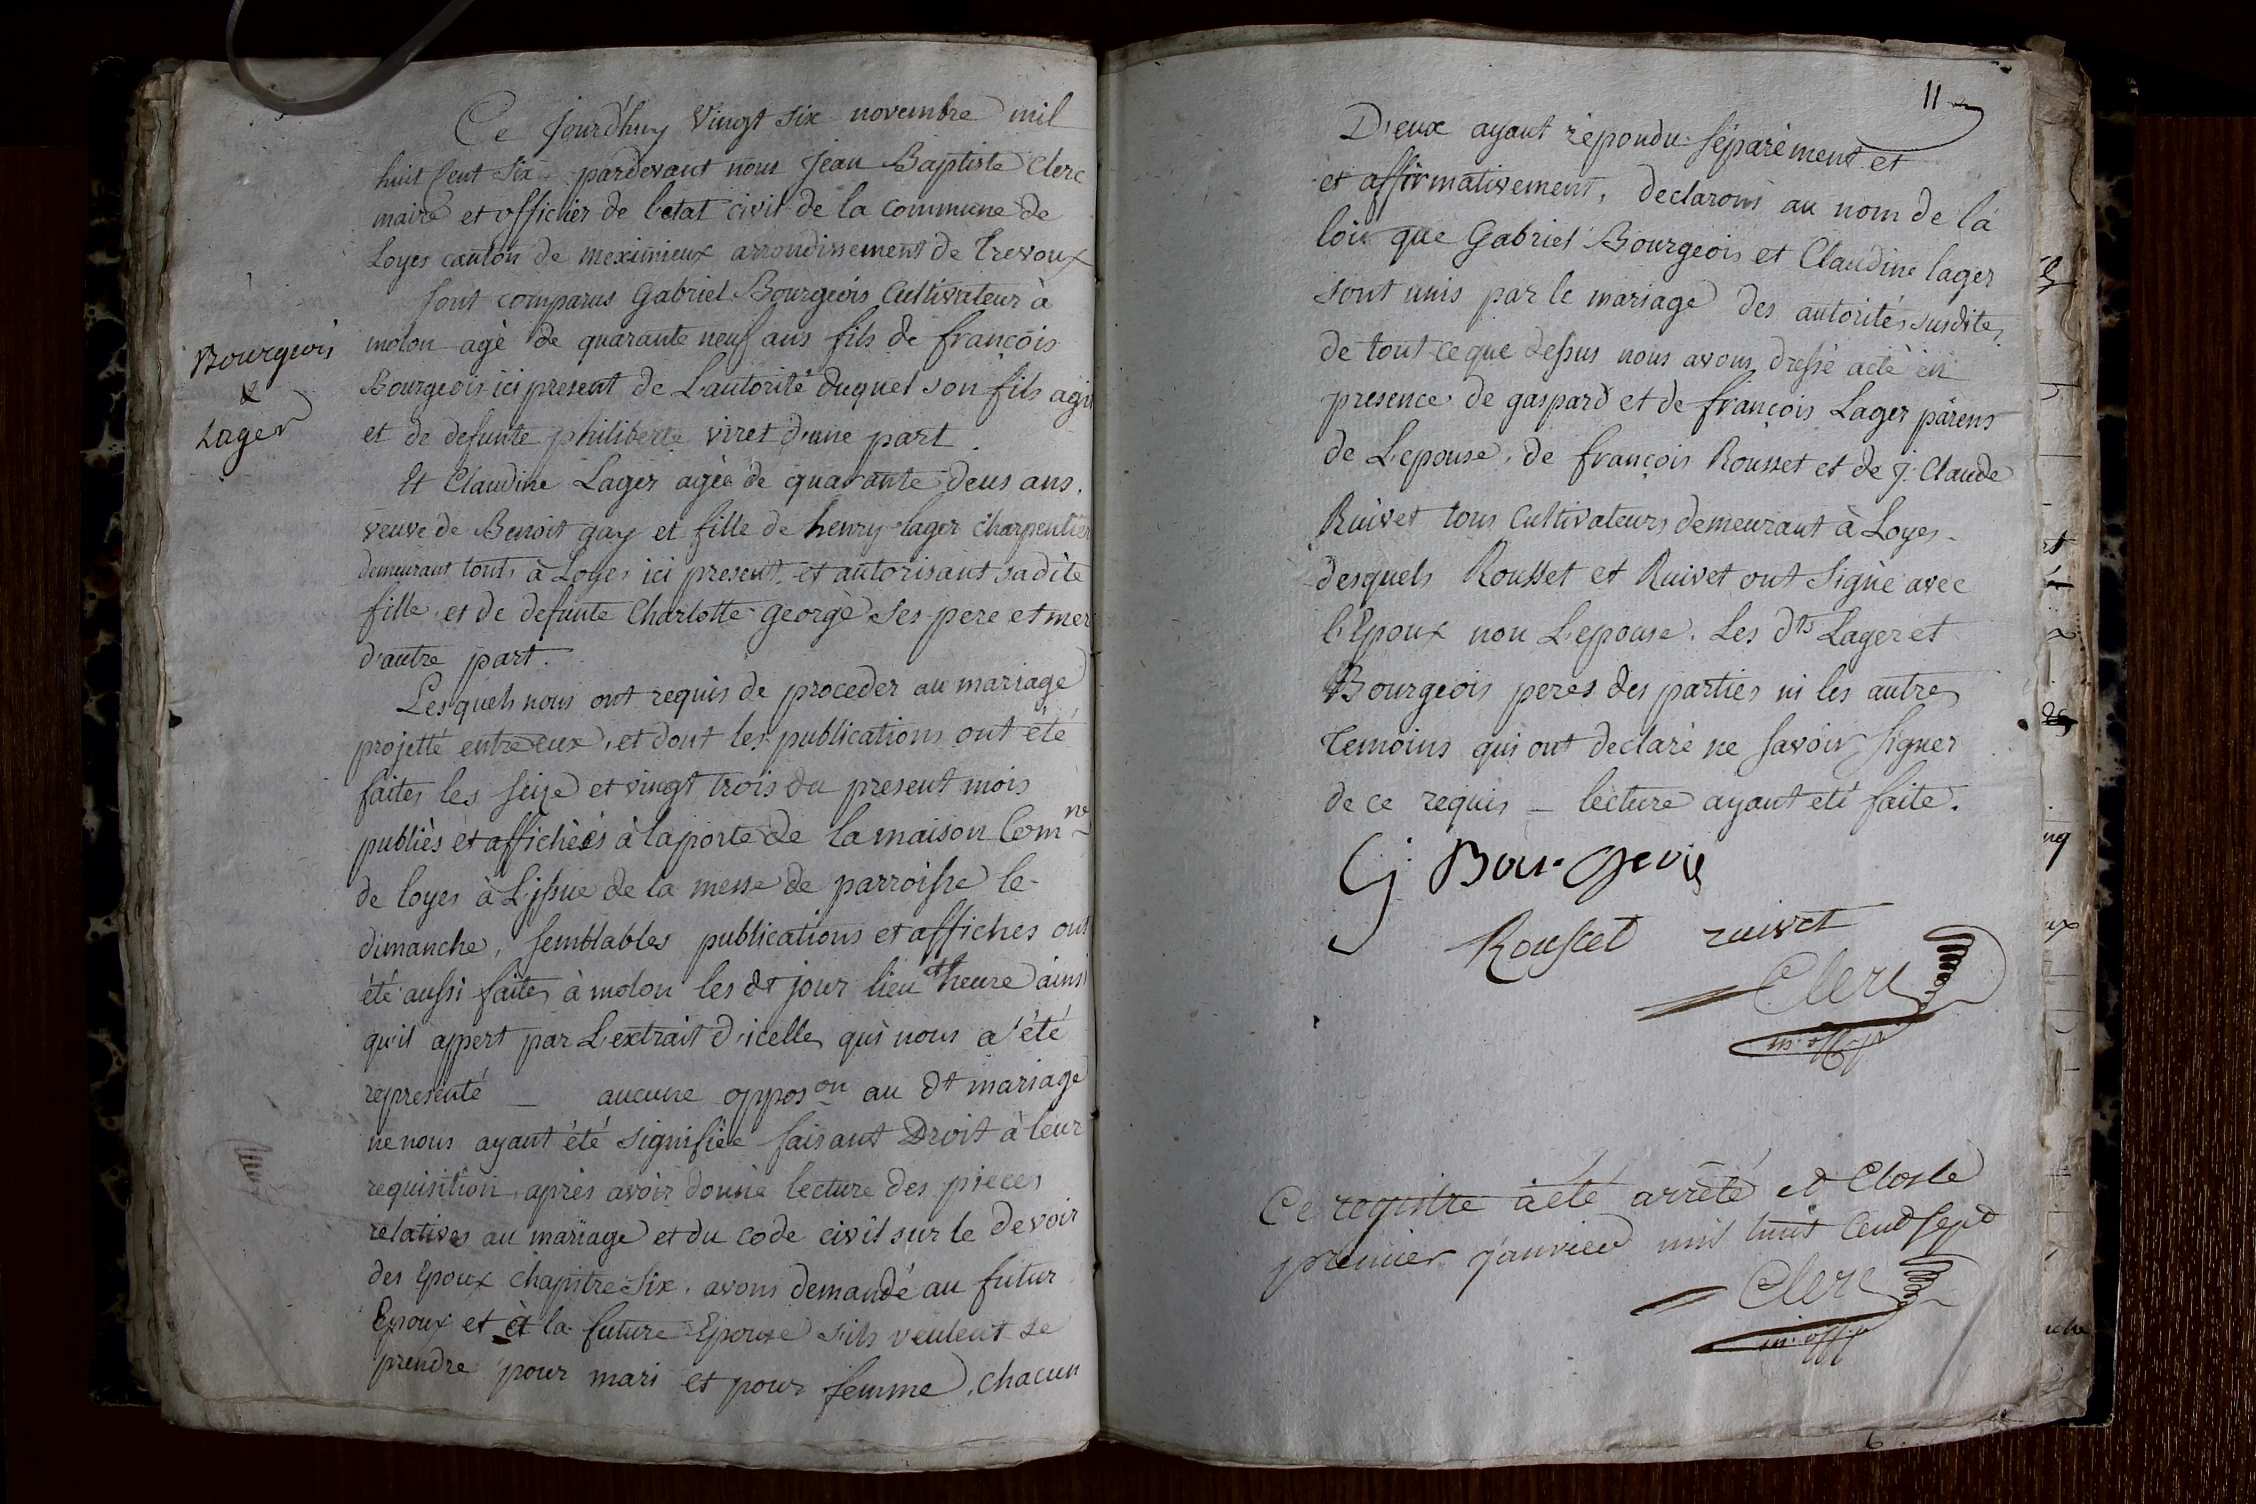 Ce jourd'huy vingt six novembre mil
huit cent six pardevant nous Jean Baptiste Clerc
maire et officier de l'etat civil de la commune de
Loyes canton de meximieux arrondissement de Trevoux
sont comparus Gabriel Bourgeois Cultivateur à
Bourgeois
&
Lager
molon agé de quarante neuf ans fils de françois
Bourgeois ici present de L'autorité duquel son fils agit
et de defunte philiberte viret d'une part.
Et Claudine Lager agée de quarante deus ans.
veuve de Benoit gay et fille de henry lager charpentier
demeurant touts à Loyes ici present et autorisant sadite
fille et de defunte Charlotte george ses pere et mere
d'autre part.
Lesquels nous ont requis de proceder au mariage
projetté entre eux, et dont les publications ont été
faites les seize et vingt trois du present mois
publiès et affichées à la porte de la maison Com.ne
de loyes à L'issue de la messe de parroisse le
dimanche, semblables publications et affiches ont
été aussi faites à molon les dt jour lieu et heure ainsi
qu'il appert par L'extrait d'icelles qui nous a été
representé _ aucune oppos.on au dt mariage
ne nous ayant été signifiée faisant Droit à leur
requisition, après avoir donné lecture des pieces
relatives au mariage et du code civil sur le devoir
des Epoux chapitre six. avons demandé au futur
Epoux et à la future Epouse s'ils veulent se
prendre pour mari et pour femme, chacun
11
D'eux ayant répondu séparément et
et affirmativement, declarons au nom de la
loi que Gabriel Bourgeois et Claudine lager
sont unis par le mariage des autorités susdites
de tout ce que dessus nous avons dressé acte en
presence de gaspard et de françois Lager parens
de L'epouse, de françois Rousset et de J. Claude
Ruivet tous Cultivateurs demeurant à Loyes.
desquels Rousset et Ruivet ont signé avec
l'Epoux non L'epouse. Les dts Lager et
Bourgeois peres des parties ni les autres
temoins qui ont declaré ne savoir signer
de ce requis _ lecture ayant été faite.
G Bourgeois
Rousset ruivet
Clerc
m. off. p.
Ce registre a été arrêté et Closle
premier janvier mil huit Cent sept
Clerc
m. off. p.